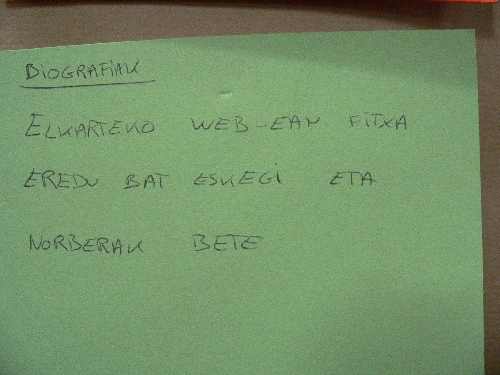 BiOGRAFiAK
ELKARTEKO WEB-EAN FITXA
EREDU BAT ESKEGi ETA
NORBERAK BETE